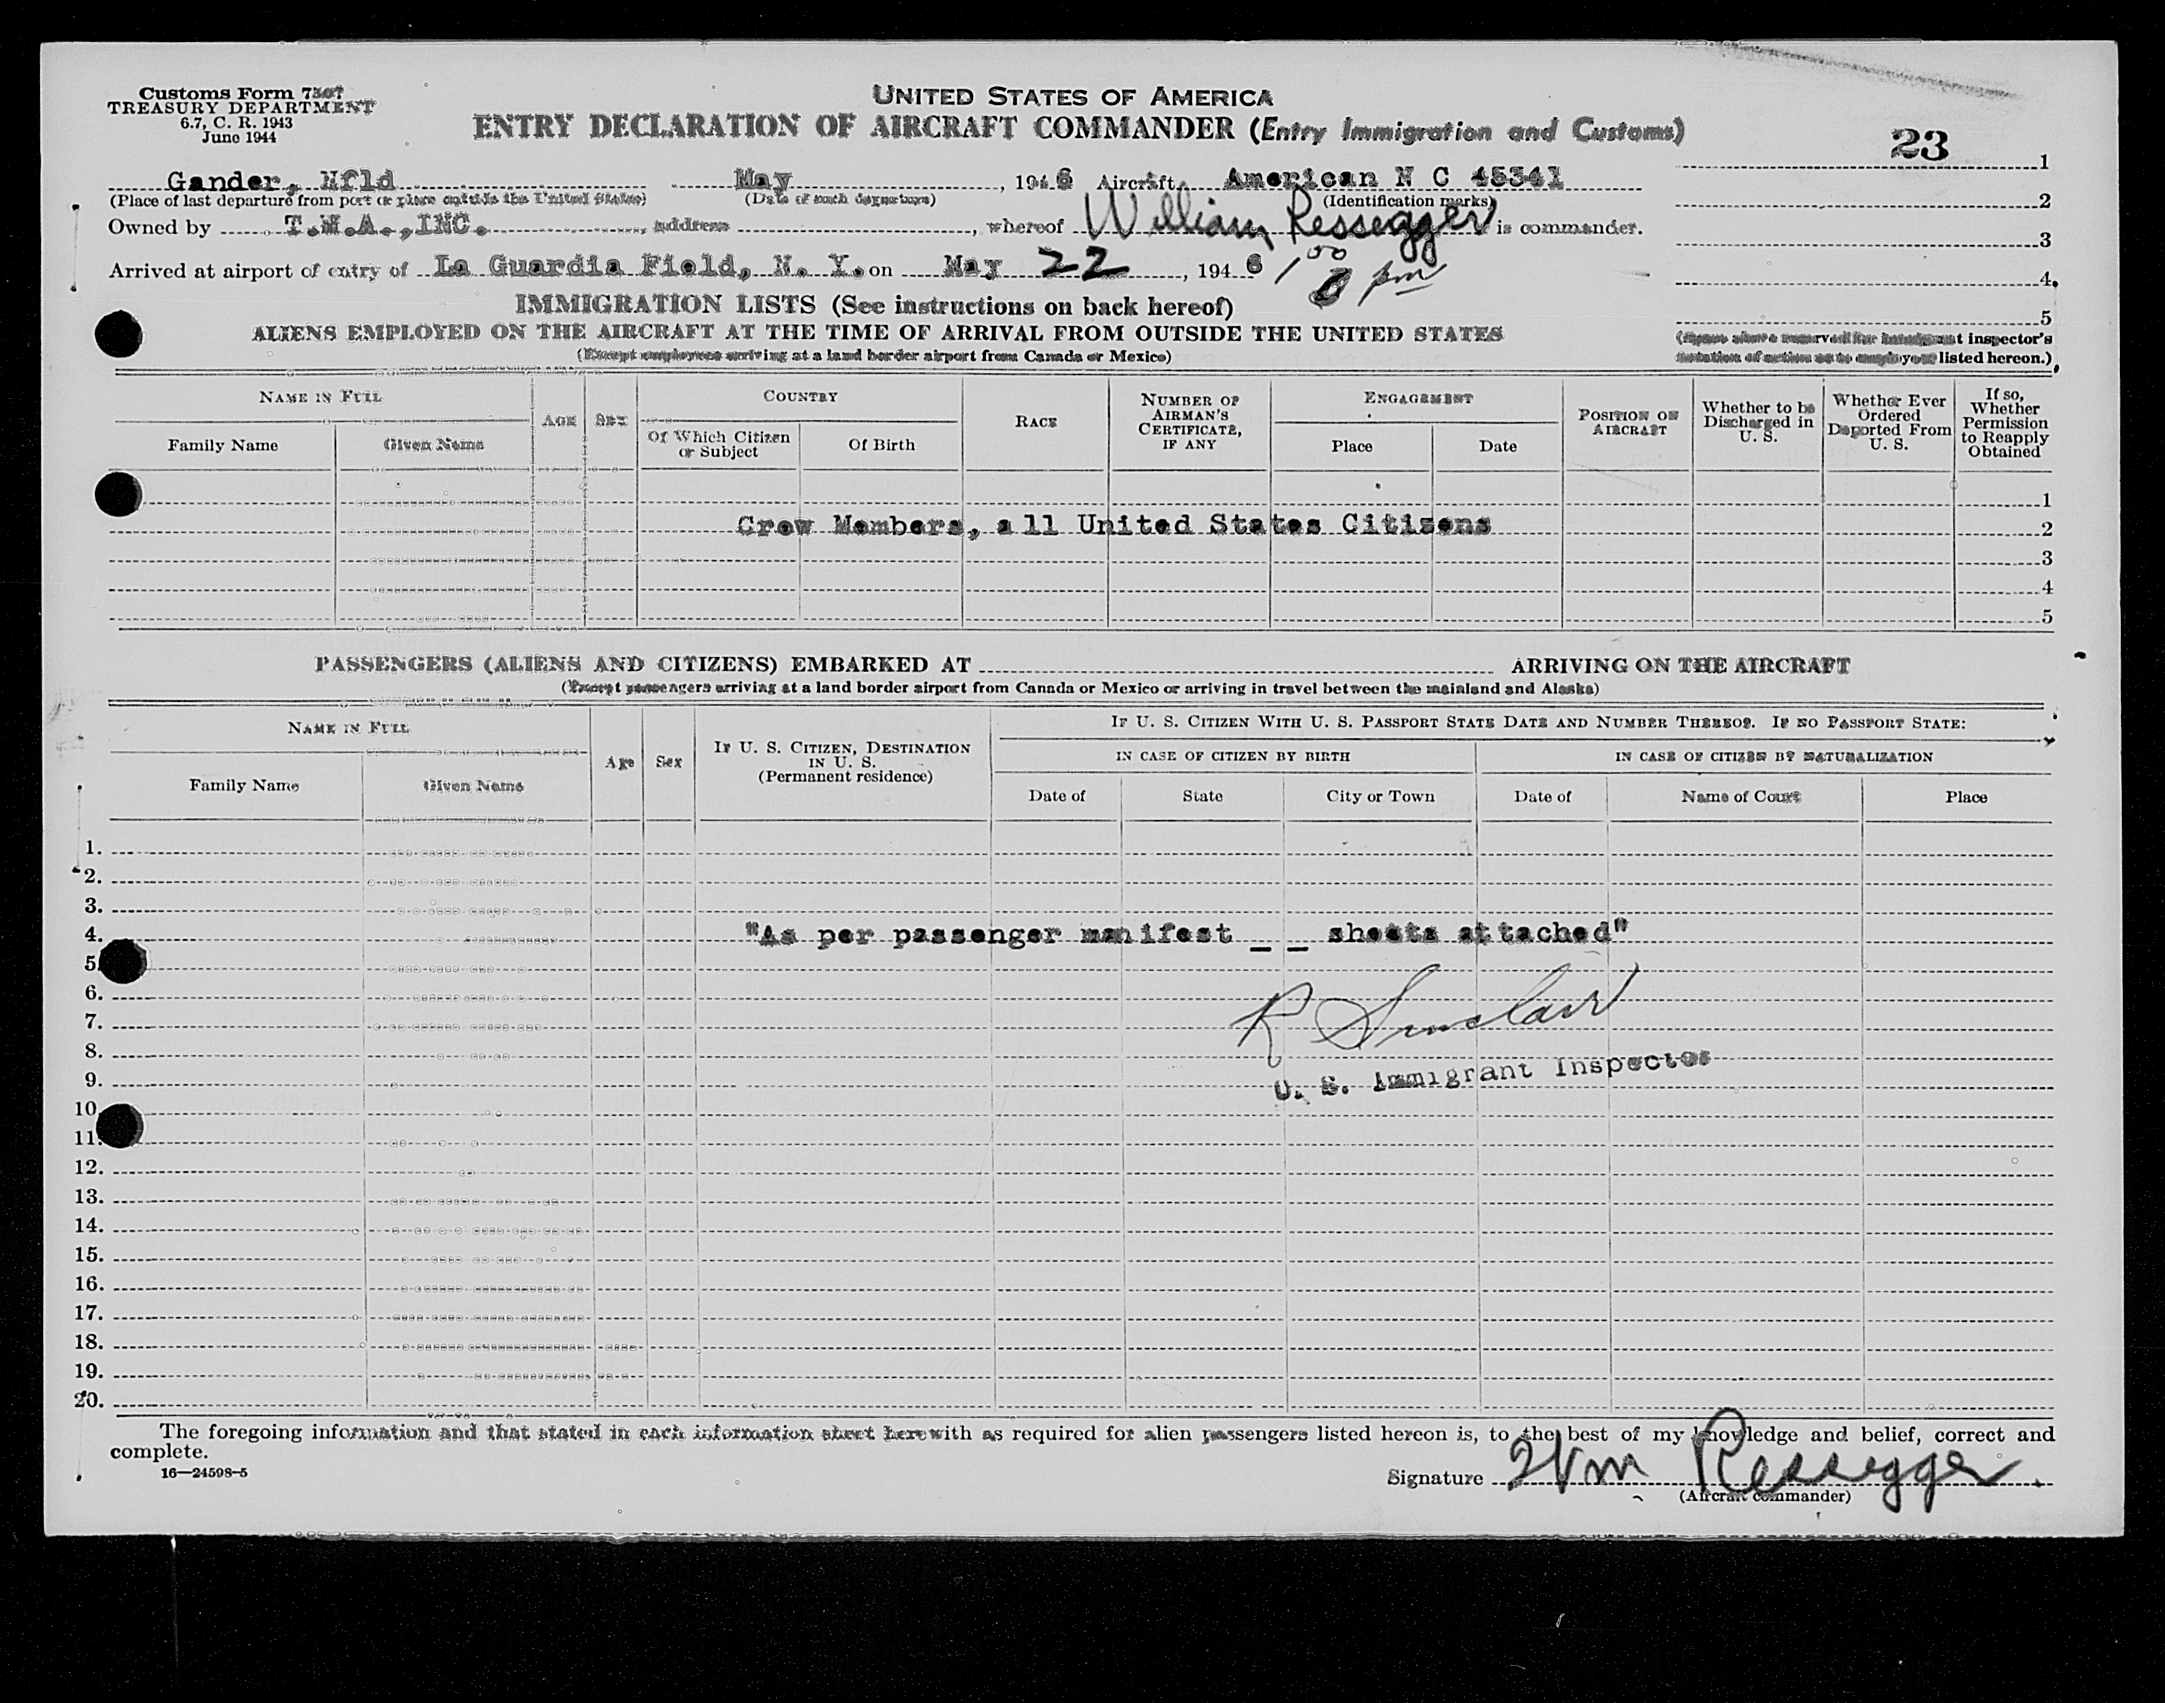 Customs Form 7507
TREASURY DEPARTMENT
6.7, C. R. 1943
June 1944
UNITED STATES OF AMERICA
ENTRY DECLARATION OF AIRCRAFT COMMANDER (Entry Immigration and Customs)
23
1
Gander, Nfld May , 1946 Aircraft American N C 45341
(Place of last departure from port or place outside the United States) (Date of such departure) (Identification marks)
2
Owned by T.W.A.,INC. , address , whereof William Ressegger is commander.
3
Arrived at airport of entry of La Guardia Field, N. Y. on May 22 , 1946 1 00 pm
4
IMMIGRATION LISTS (See instructions on back hereof)
5
ALIENS EMPLOYED ON THE AIRCRAFT AT THE TIME OF ARRIVAL FROM OUTSIDE THE UNITED STATES
(Except employees arriving at a land border airport from Canada or Mexico)
(Spaces above reserved for immigrant inspector's
notation of action as to employees listed hereon.)
NAME IN FULL
Family Name
Given Name
AGE
SEX
COUNTRY
Of Which Citizen
or Subject
Of Birth
RACE
NUMBER OF
AIRMAN'S
CERTIFICATE,
IF ANY
ENGAGEMENT
Place
Date
POSITION ON
AIRCRAFT
Whether to be
Discharged in
U. S.
Whether Ever
Ordered
Deported From
U. S.
If so,
Whether
Permission
to Reapply
Obtained
1
Crew Members, all United States Citizens 2
3
4
5
PASSENGERS (ALIENS AND CITIZENS) EMBARKED AT ARRIVING ON THE AIRCRAFT
(Except passengers arriving at a land border airport from Canada or Mexico or arriving in travel between the mainland and Alaska)
NAME IN FULL
Family Name
Given Name
Age
Sex
IF U. S. CITIZEN, DESTINATION
IN U. S.
(Permanent residence)
IF U. S. CITIZEN WITH U. S. PASSPORT STATE DATE AND NUMBER THEREOF. IF NO PASSPORT STATE:
IN CASE OF CITIZEN BY BIRTH
IN CASE OF CITIZEN BY NATURALIZATION
Date of
State
City or Town
Date of
Name of Court
Place
1.
2.
3.
4. "As per passenger manifest _ _ sheets attached"
5.
6.
7. R Sinclair
8.
9. U. S. Immigrant Inspector
10.
11.
12.
13.
14.
15.
16.
17.
18.
19.
20.
The foregoing information and that stated in each information sheet herewith as required for alien passengers listed hereon is, to the best of my knowledge and belief, correct and
complete.
16—24598-5
Signature Wm Ressegger
(Aircraft commander)